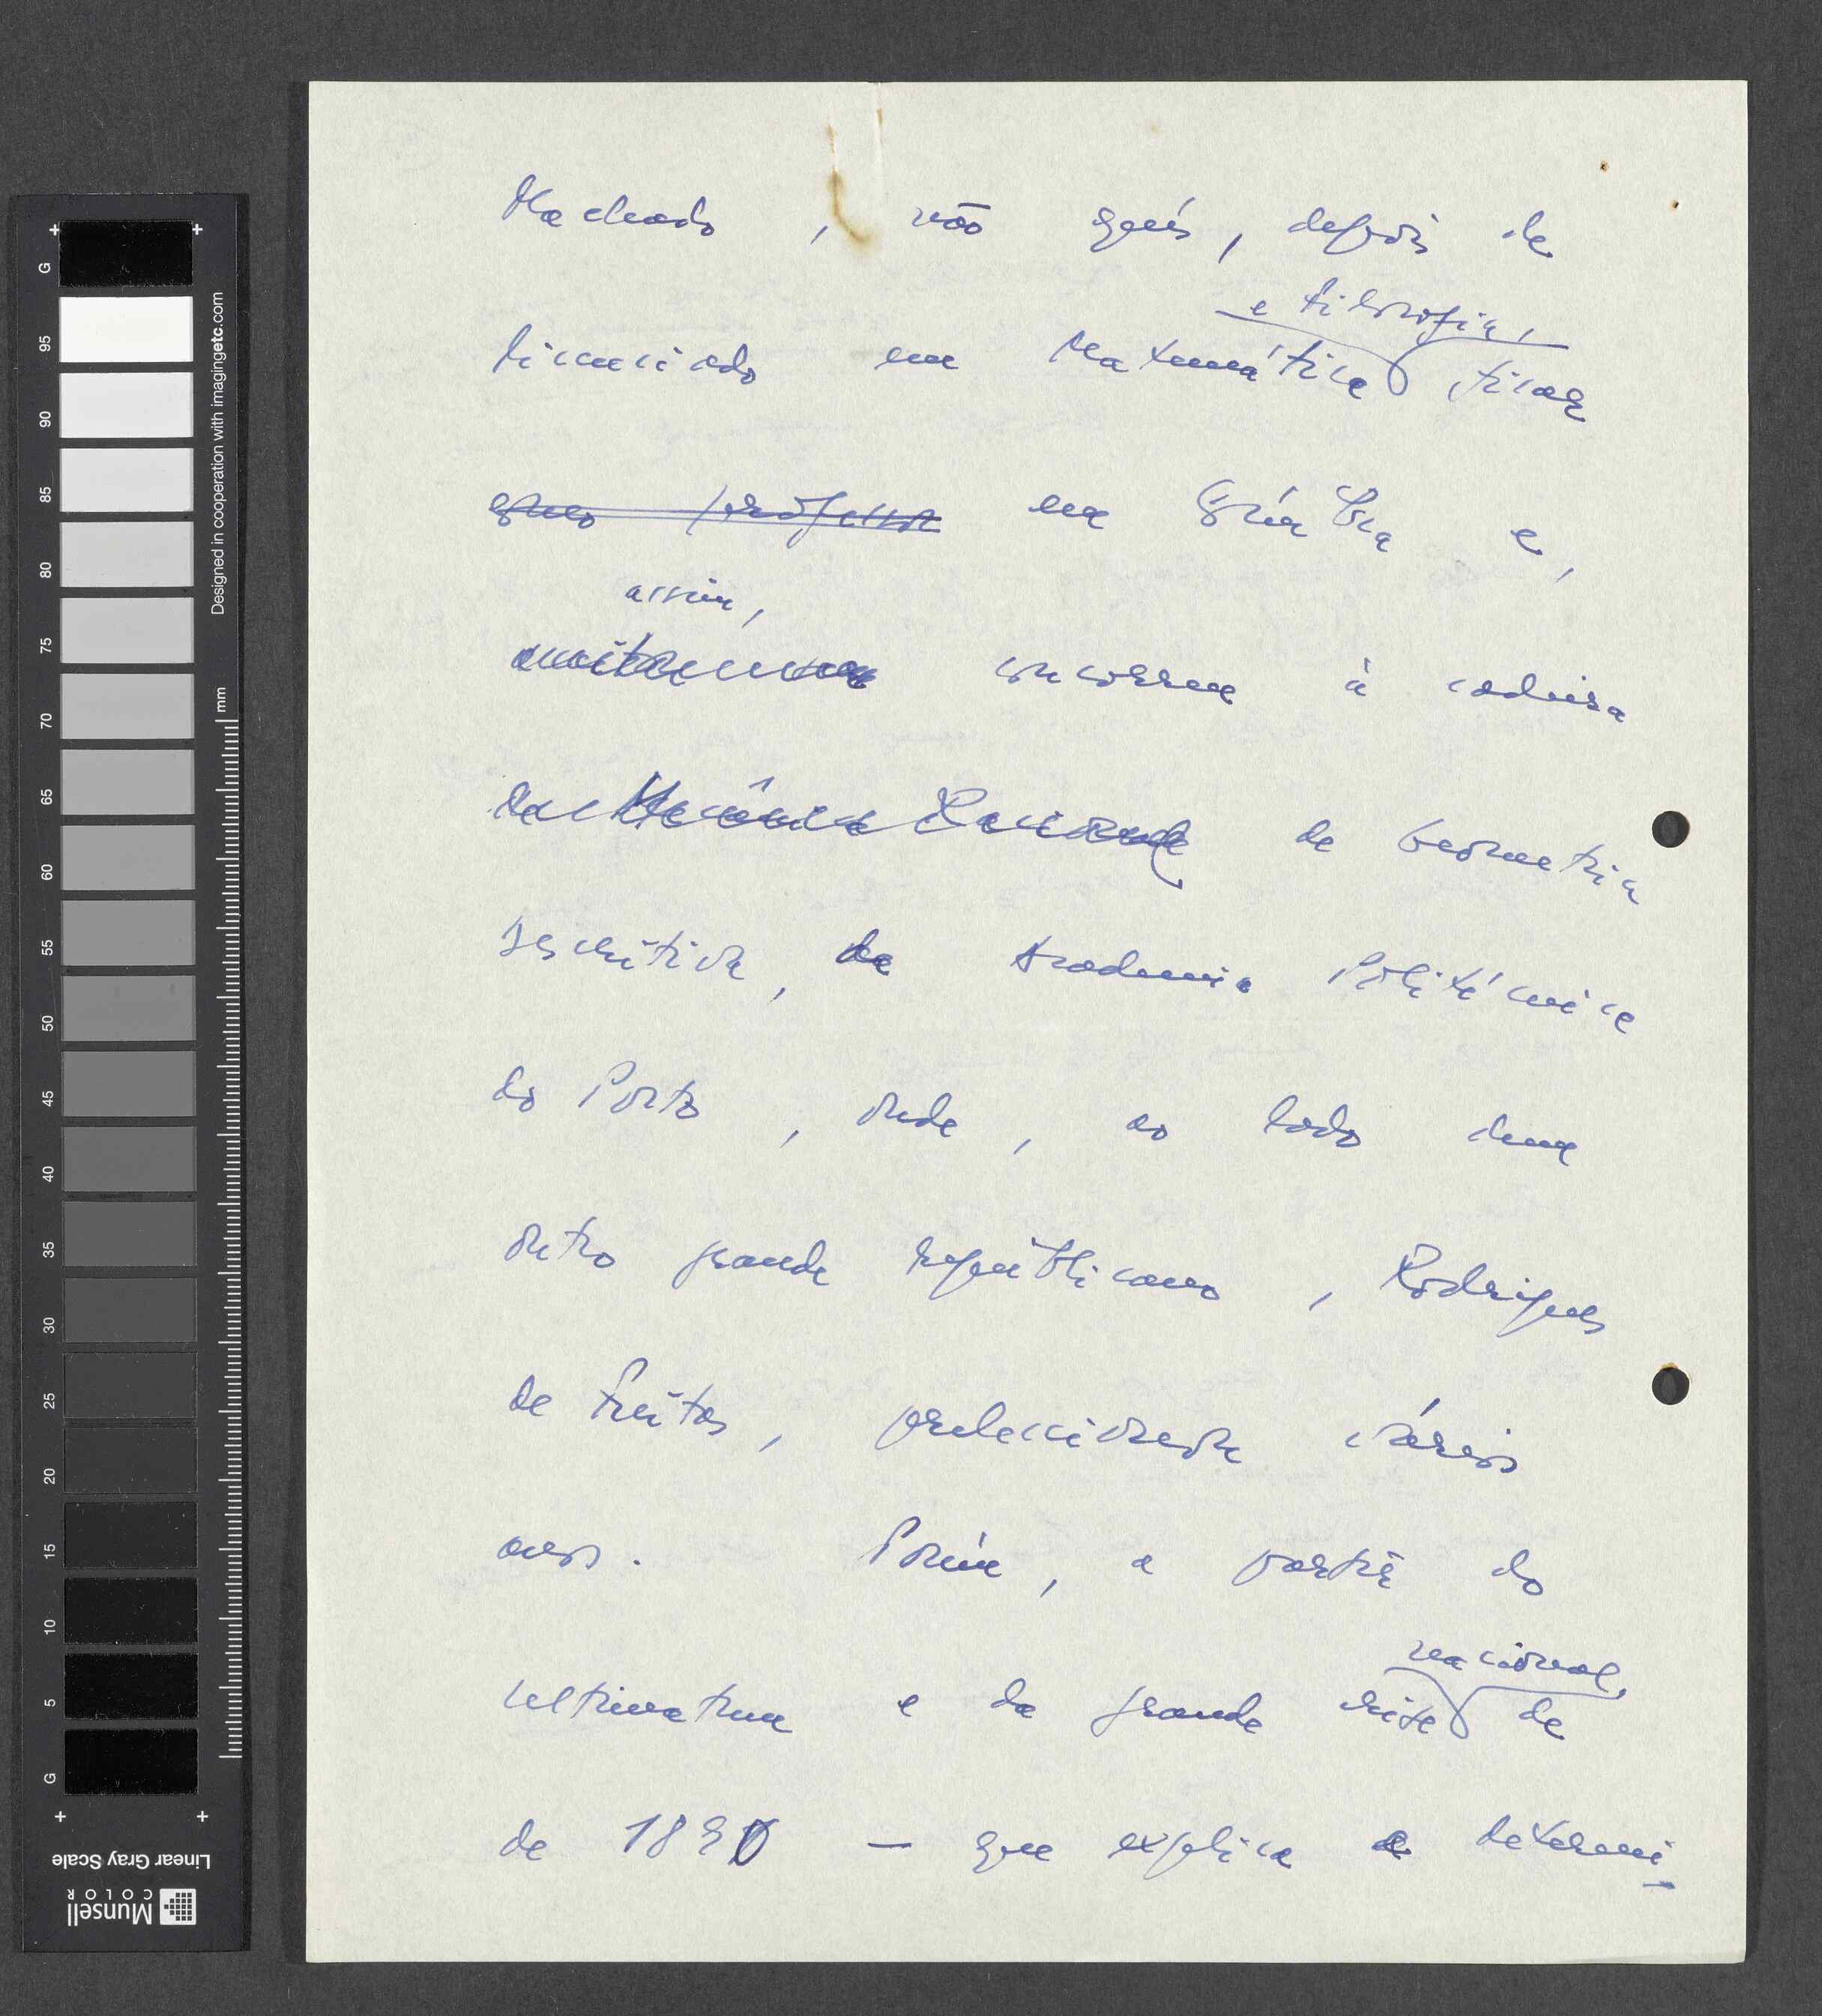 Machado, não quis, depois de
e Filosofia,
licenciado em Matemática ficar
como professor em Coimbra e,
assim,
concorreu à cadeira
da Mecânica Racional de Geometria
Descritiva, da Academia Politécnica
do Porto, onde, ao lado dum
outro grande republicano, Rodrigues
de Freitas, preleccionou vários
anos. Porém, a partir do
nacional,
ultimatum e da grande crise de
de 1890 — que explica e determi-
G
95
90
85
80
75
70
65
60
55
50
45
40
35
30
25
20
15
10
5
G
mm
Designed in cooperation with imagingetc.com
Linear Gray Scale
Munsell
COLOR